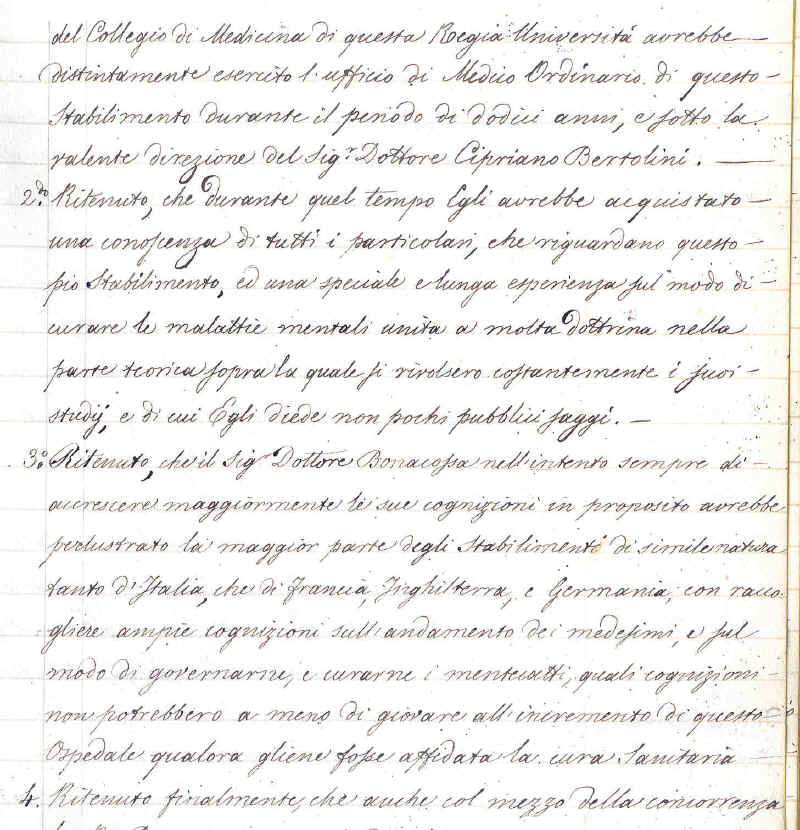 del Collegio di Medicina di questa Regia Università avrebbe
distintamente esercito l'ufficio di Medico Ordinario di questo
Stabilimento durante il periodo di dodici anni, e sotto la
valente direzione del Sig.r Dottore Cipriano Bertolini. —
2.do Ritenuto, che durante quel tempo Egli avrebbe acquistato
una conoscenza di tutti i particolari, che riguardano questo
pio Stabilimento, ed una speciale e lunga esperienza sul modo di
curare le malattie mentali unita a molta dottrina nella
parte teorica sopra la quale si rivolsero costantemente i suoi
studij, e di cui Egli diede non pochi pubblici saggi. —
3.o Ritenuto, che il Sig.r Dottore Bonacossa nell'intento sempre di
accrescere maggiormente le sue cognizioni in proposito avrebbe
perlustrato la maggior parte degli Stabilimenti di simile natura
tanto d'Italia, che di Francia, Inghilterra, e Germania, con racco-
gliere ampie cognizioni sull'andamento dei medesimi, e sul
modo di governarne, e curarne i mentecatti, quali cognizioni
non potrebbero a meno di giovare all'incremento di questo
Ospedale qualora gliene fosse affidata la cura Sanitaria
4. Ritenuto finalmente, che anche col mezzo della concorrenza